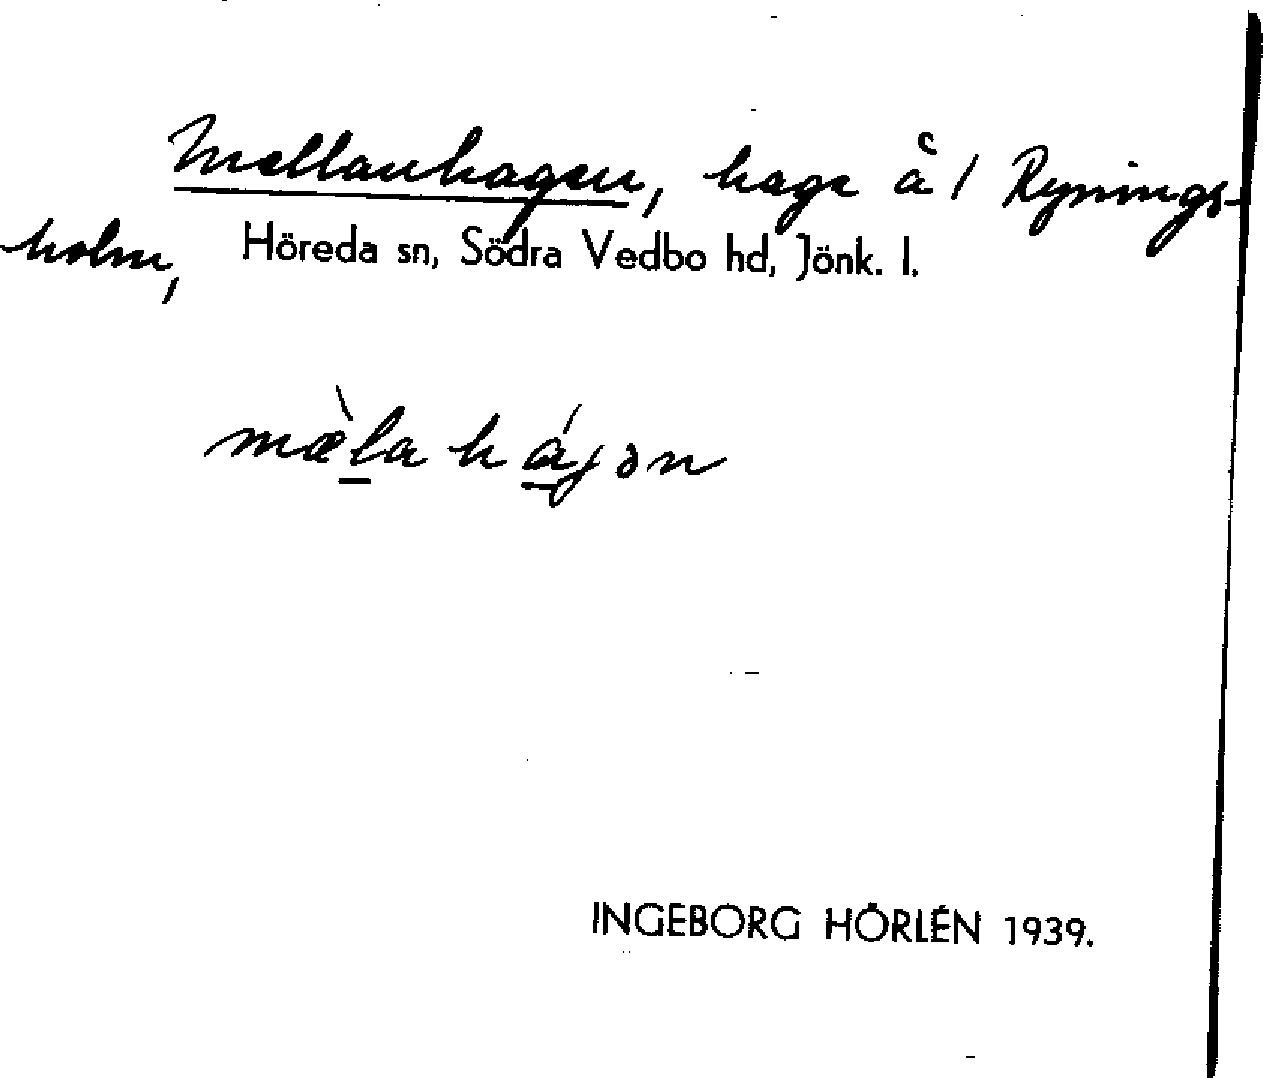 Mellanhagen, hage å 1 Rynings-
holm, Höreda sn, Södra Vedbo hd, Jönk. l.
mæ̀la hájən
INGEBORG HÖRLÉN 1939.